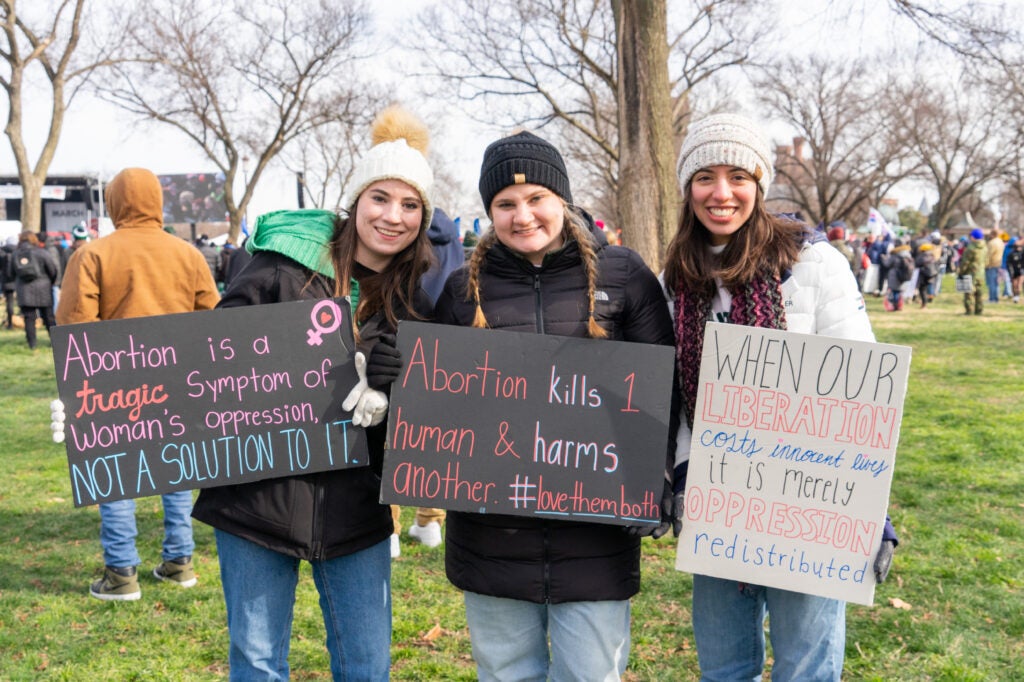 MARCH
Abortion is a
tragic Symptom of
Woman's oppression,
NOT A SOLUTION TO IT.
Abortion kills 1
human & harms
another. #lovethemboth
WHEN OUR
LIBERATION
costs innocent lives
it is merely
OPPRESSION
redistributed